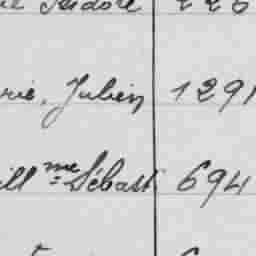 Isidore 226
rie, Julien 1291
ill me Sébast 694